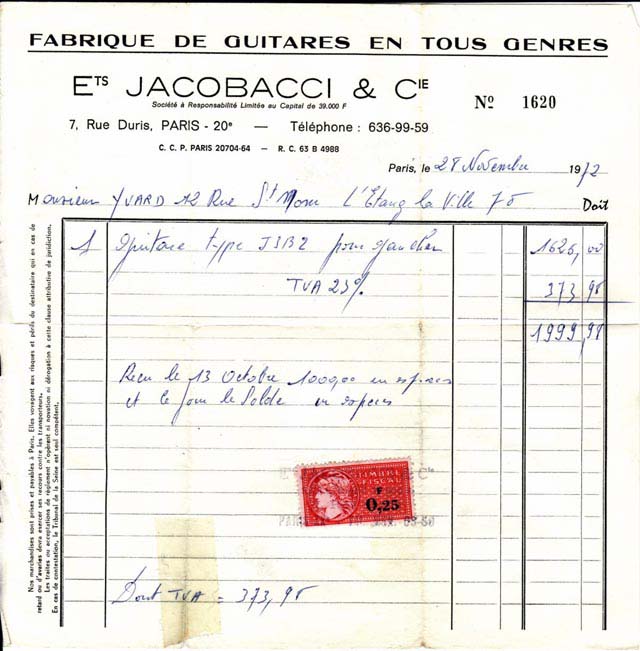 FABRIQUE DE GUITARES EN TOUS GENRES
ETS JACOBACCI & CIE
Société à Responsabilité Limitée au Capital de 39.000 F
Nº 1620
7, Rue Duris, PARIS - 20e — Téléphone : 636-99-59
C. C. P. PARIS 20704-64 — R. C. 63 B 4988
Paris, le 28 Novembre 1972
Monsieur YVARD 12 Rue St Nom L'Etang la Ville 78 Doit
1 guitare type JSB2 pour gaucher 1626,00
TVA 23% 373,98
1999,98
Recu le 13 Octobre 1000,00 en especes
et ce jour le Solde en especes
TIMBRE
FISCAL
F
0,25
PARIS
Dont TVA = 373,98
Nos marchandises sont prises et payables à Paris. Elles voyagent aux risques et périls du destinataire qui en cas de
retard ou d'avaries devra exercer ses recours contre les transporteurs.
Les traites ou acceptations de règlement n'opèrent ni novation ni dérogation à cette clause attributive de juridiction.
En cas de contestation, le Tribunal de la Seine est seul compétent.